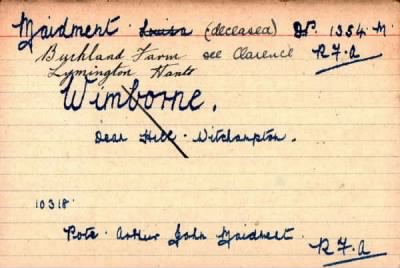 Maidment. Louisa (deceased) Dp. 1354. M.
Buckland Farm see Clarence R.F.A
Lymington Hants
Wimborne.
Dean Hill. Witchampton.
10318.
Pote. Arthur John Maidment.
R.F.A